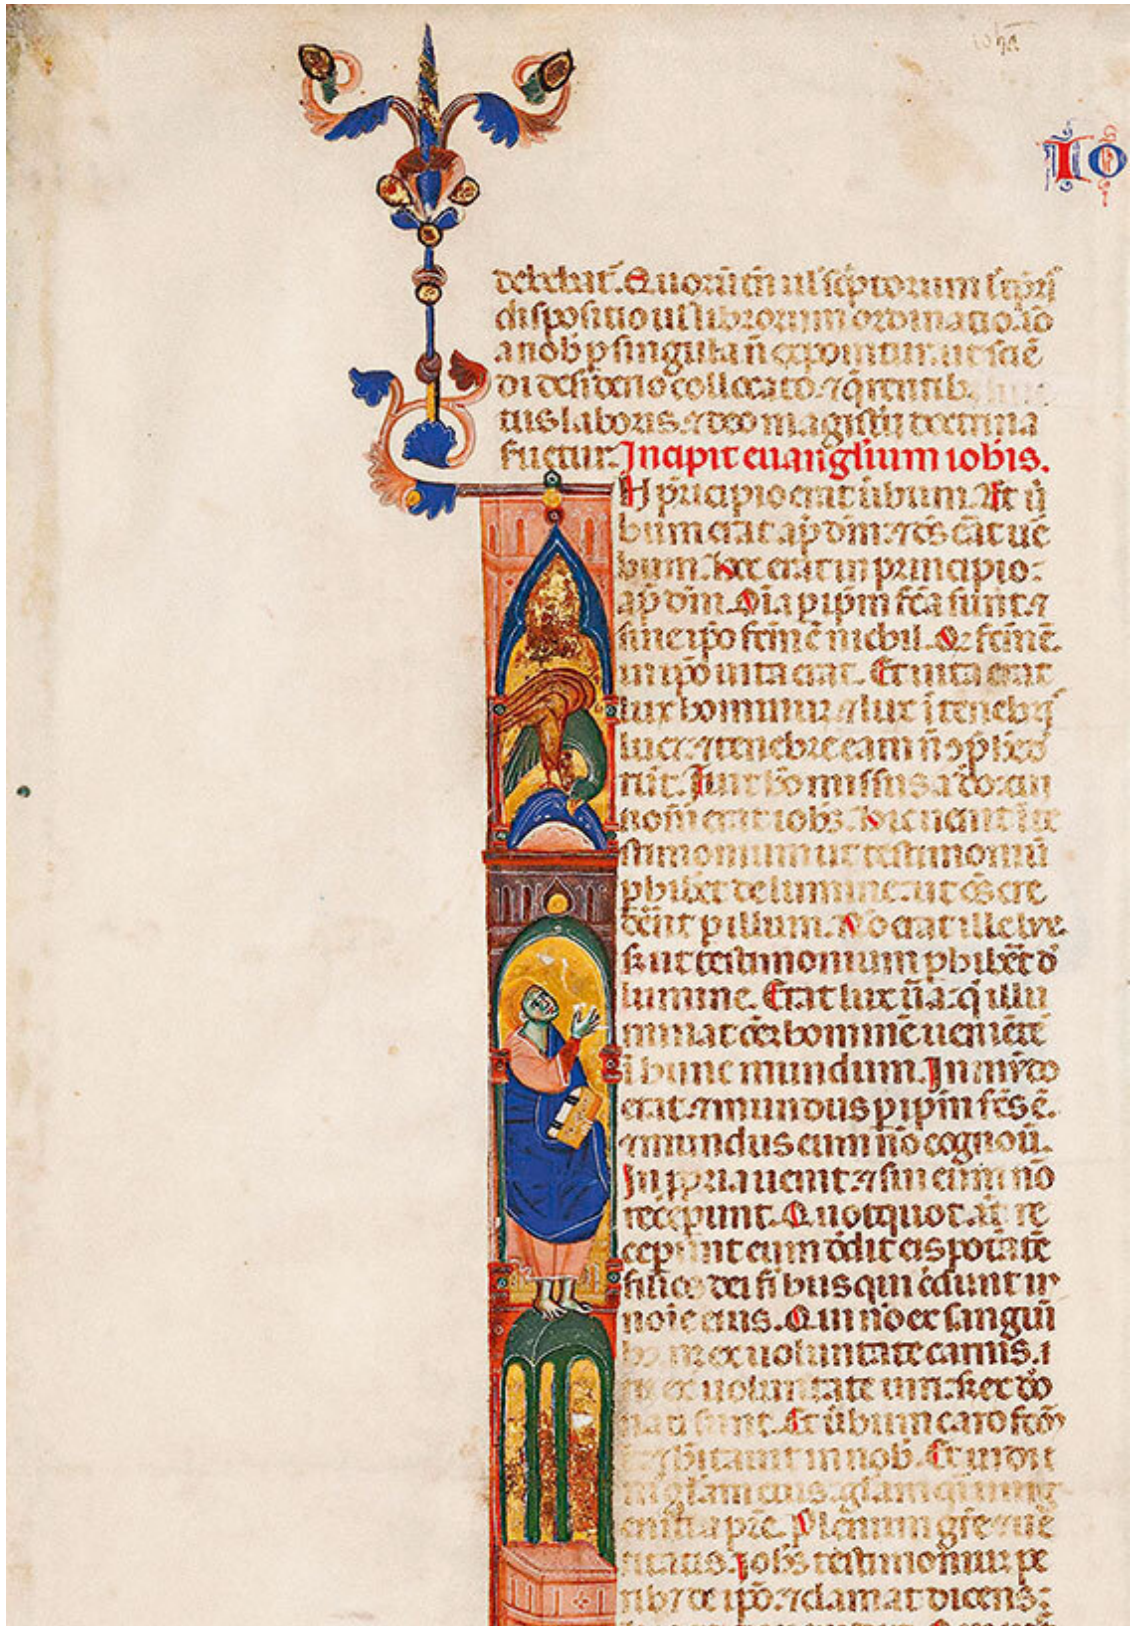 iohā
IO
debebat᷒. Quorū eñ ul sc̄ptorum tēpr̄i
dispositio ul librorum ordinatio. iō
a nob̄ ꝑ singula ñ exponitur. ut sciē
di desiderio collocato. ⁊ q̄rentib;
tus laboris. ⁊ deo magistīj doctrina
suetur. Incipit euanglīum iohīs.
N pͥncipio erat ūbum. Et ū
bum erat ap̄ dm̄. ⁊ dēs erat ue
bum. Hoc erat in principio
ap̄ dm̄. Oīa ꝑ ip̄m fc̄a sunt. ⁊
sine ip̄o fcm̄ ē nichil. Qͦ fcm̄ ē.
in ip̄o uita erat. Et uita erat
lux hominum. ⁊ lux ī tenebrͥ
lucet. ⁊ tenebre eam ñ ꝯp̄hēd
rūt. Fuit hō missus a dō. cui
nom̄ erat iohs̄. Hic uenit ī te
stimonium ut testimoniū
ꝑhibēt de lumine. ut oēs cre
dēnt ꝑ illum. Nō erat ille lux.
s; ut testimonium ꝑhibēt dͦ
lumine. Erat lux ūa. q̄ illu
minat oēm hominē ueniētē
ī hunc mundum. In mūdo
erat. ⁊ mundus ꝑ ip̄m fc̄s ē.
⁊ mundus eum nō cognoū.
In ꝓpria uenit. ⁊ sui eum nō
recepunt. Quotquot aū re
cepunt eum dēdit eis potātē
filios dei fi his qui cr̄dunt in
noīe eius. Qui nō ex sanguī
ex uoluntate carnis.
ex uoluntate uiri. s; ex dō
nati sunt. Et ūbum caro fcm̄
⁊ hītauit in nob̄. Et uidīt
gl̄am eius. gl̄am
a pr̄e. Plēnum gr̄e ⁊ ue
ritatis. Iohs̄ testimonium pe
rib; de ip̄o. ⁊ clamat dicens: